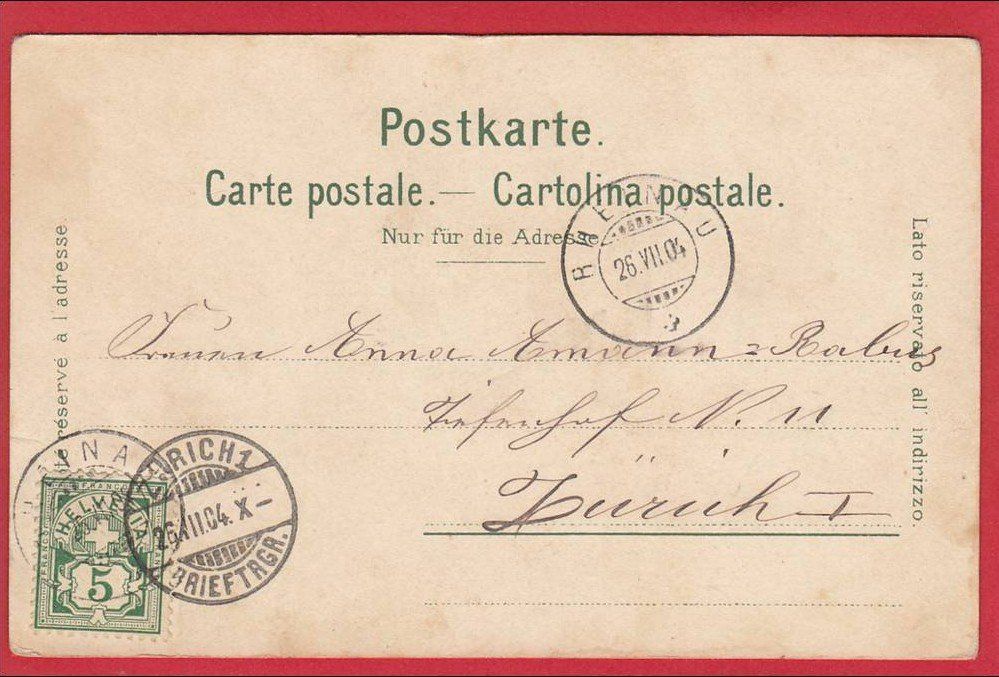 Postkarte.
Carte postale.— Cartolina postale.
Nur für die Adresse.
RHEINAU
26.VII.04
3
Côté réservé à l'adresse
Lato riservato all' indirizzo
Frauen Anna Amann=Rabus
Tiefenhof N. 11
Zürich I
RHEINAU
ZÜRICH 1
26.VII.04. X–
BRIEFTRGR.
FRANCO
HELVETIA
5